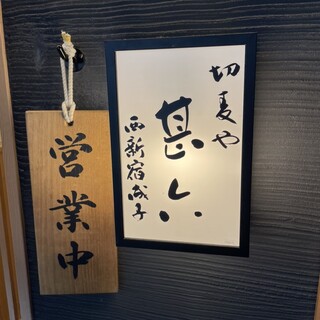 切麦や
甚六
西新宿成子
営業中